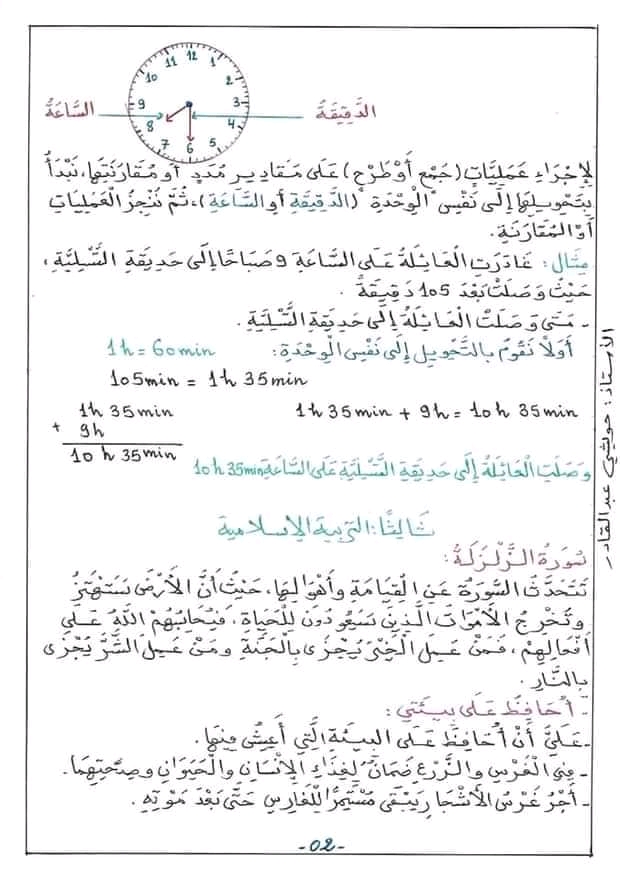 12
1
2
3
4
5
6
7
8
9
10
11
السَّاعَةُ
الدَّقِيقَةُ
لِإجْرَاءِ عَمَلِيَّاتٍ (جَمْعٍ أَوْ طَرْحٍ) عَلَى مَقَادِيرِ مُدَدٍ أَوْ مُقَارَنَتِهَا، نَبْدَأُ
بِتَحْوِيلِهَا إِلَى نَفْسِ "الْوِحْدَةِ" (الدَّقِيقَةِ أَوِ السَّاعَةِ)، ثُمَّ نُنْجِزُ الْعَمَلِيَاتِ
أَوْ الْمُقَارَنَةِ.
مِثَال: غَادَرَتِ الْعَائِلَةُ عَلَى السَّاعَةِ 9 صَبَاحًا إِلَى حَدِيقَةِ التَّسْلِيَّةِ،
حَيْثُ وَصَلَتْ بَعْدَ 105 دَقِيقَةً.
- مَتَى وَصَلَتْ الْعَائِلَةُ إِلَى حَدِيقَةِ التَّسْلِيَّةِ.
أَوَلاً نَقُومُ بِالتَّحْوِيلِ إِلَى نَفْسِ الْوِحْدَةِ: 1h = 60min
105min = 1h 35min
1h 35min
+ 9h
10 h 35min
1h 35min + 9h = 10h 35min
وَصَلَتِ الْعَائِلَةُ إِلَى حَدِيقَةِ التَّسْلِيَّةِ عَلَى السَّاعَةِ 10h 35min
ثَالِثًا: التربية الإسلامية
سُورَةُ الزَّلْزَلَةُ:
تَتَحَدَّثُ السُّورَةُ عَنِ الْقِيَامَةِ وَأَهْوَالِهَا، حَيْثُ أَنَّ الْأَرْضَ سَتَهْتَزُّ
وَتُخْرِجُ الْأَمْوَاتَ الَّذِينَ سَيَعُودُونَ لِلْحَيَاةِ، فَيُحَاسِبُهُمْ اللَّهُ عَلَى
أَفْعَالِهِمْ، فَمَنْ عَمِلَ الْخَيْرَ يُجْزَى بِالْجَنَّةِ وَمَنْ عَمِلَ الشَّرَّ يُجْزَى
بِالنَّارِ.
- أُحَافِظُ عَلَى بِيئَتِي:
- عَلَيَّ أَنْ أُحَافِظَ عَلَى الْبِيئَةِ الَّتِي أَعِيشُ فِيهَا.
- فِي الْغَرْسِ وَالزَّرْعِ ضَمَانٌ لِغِذَاءِ الْإِنْسَانِ وَالْحَيَوَانِ وَصِحَّتِهِمَا.
- أَجْرُ غَرْسِ الْأَشْجَارِ يَبْقَى مُسْتَمِرًّا لِلْغَارِسِ حَتَّى بَعْدَ مَوْتِهِ.
-02-
الأستاذ: حوليشي عبد القادر